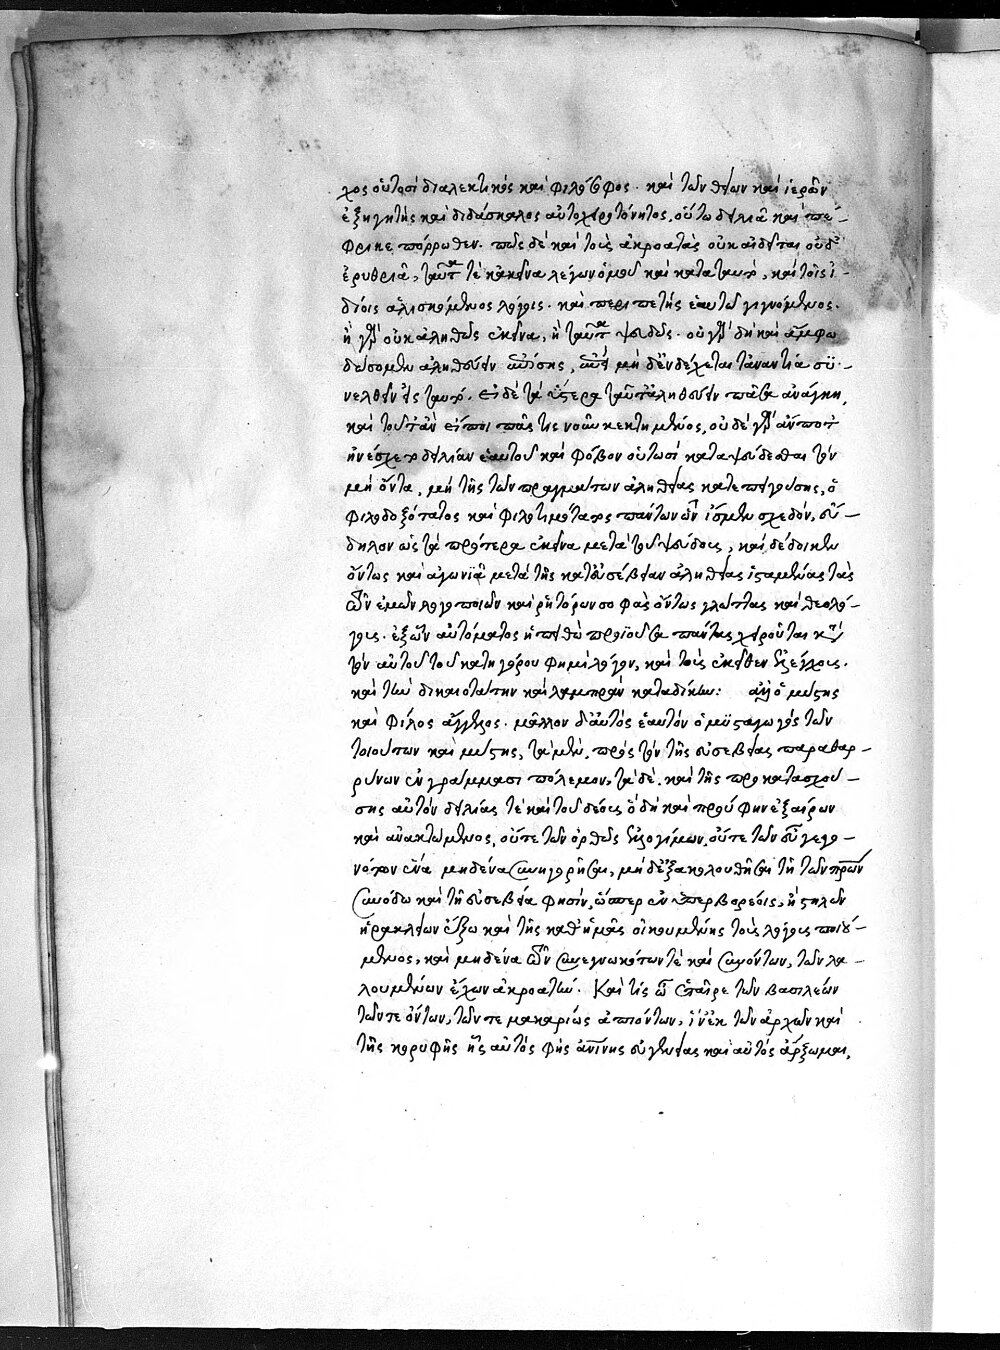 λος οὑτοσὶ διαλεκτικὸς καὶ φιλόσοφος· καὶ τῶν θείων καὶ ἱερῶν
ἐξηγητὴς καὶ διδάσκαλος αὐτοχειροτόνητος, οὕτω δειλιᾶ καὶ πέ-
φρικε πόρρωθεν· πῶς δὲ καὶ τοὺς ἀκροατὰς οὐκ αἰδεῖται οὐδ'
ἐρυθριᾶ, ταῦτά τε κἀκεῖνα λέγων ὁμοῦ καὶ κατὰ ταυτὸ, καὶ τοῖς ἰ-
δίοις ἁλισκόμενος λόγοις· καὶ περιπετὴς ἑαυτῶ γιγνόμενος·
ἢ γὰρ οὐκ ἀληθῶς ἐκεῖνα, ἢ ταῦτα ψευδῶς· οὐ γὰρ δὴ καὶ ἄμφω
δώσομεν ἀληθεύειν μὴ ἐνδέχεται τἀναντία συ-
νελθεῖν εἰς ταυτό· εἰ δὲ τὰ ὕστερα ταῦτ' ἀληθεύειν πᾶσα ἀνάγκη,
καὶ τοῦτ' ἂν εἴποι πᾶς τις νοῦν κεκτημένος, οὐδὲ γὰρ ἄν ποτ'
ἠνέσχετο δειλίαν ἑαυτοῦ καὶ φόβον οὑτωσὶ καταψεύδεσθαι τὸν
μὴ ὄντα, μὴ τῆς τῶν πραγμάτων ἀληθείας κατεπειγούσης, ὁ
φιλοδοξότατος καὶ φιλοτιμότατος πάντων ὧν ἴσμεν σχεδόν, εὔ-
δηλον ὡς τὰ πρότερα ἐκεῖνα μετὰ τοῦ ψεύδους, καὶ δέδοικεν
ὄντως καὶ ἀγωνιᾶ μετὰ τῆς κατ' εὐσέβειαν ἀληθείας ἱσταμένας τὰς
τῶν ἐμῶν λογοποιῶν καὶ ῥητόρων σοφὰς ὄντως γλώττας καὶ θεολό-
γους· ἐξ ὧν αὐτόματος ἡ πειθὼ προϊοῦσα πάντας χειροῦται κατὰ
τὸν αὐτοῦ τοῦ κατηγόρου φημὶ λόγον, καὶ τοὺς ἐκεῖθεν ἐλέγχους·
καὶ τὴν δικαιοτάτην καὶ λαμπρὰν καταδίκην: ἀλλ' ὁ μύστης
καὶ φίλος ἄγγελος· μᾶλλον δ' αὐτὸς ἑαυτὸν ὁ μυσταγωγὸς τῶν
τοιούτων καὶ μύστης, τὰ μὲν, πρὸς τὸν τῆς εὐσεβείας παραθαρ-
ρύνων ἐν γράμμασι πόλεμον, τὰ δὲ, καὶ τῆς προκατασχού-
σης αὐτὸν δειλίας τε καὶ τοῦ δέους ὃ δὴ καὶ προύφην ἐξαίρων
καὶ ἀνακτώμενος, οὔτε τῶν ὀρθῶς ἐλλογίμων, οὔτε τῶν εὖ γεγο-
νότων ἕνα μηδένα συνηγορῆσαι, μὴ δ' ἐξακολουθῆσαι τῆ τῶν πατέρων
συνόδω καὶ τῆ εὐσεβεία φησὶν, ὥσπερ ἐν ὑπερβορέοις, ἢ στηλῶν
ἡρακλείων ἔξω καὶ τῆς καθ' ἡμᾶς οἰκουμένης τοὺς λόγους ποιού-
μενος, καὶ μηδένα τῶν συνεγνωκότων τὲ καὶ συνόντων, τῶν λα-
λουμένων ἔχων ἀκροατήν· Καὶ τίς ὦ ἑταῖρε τῶν βασιλέων
τῶν τε ὄντων, τῶν τε μακαρίως ἀπιόντων, ἵν' ἐκ τῶν ἀρχῶν καὶ
τῆς κορυφῆς ἧς αὐτὸς φὴς ἁπάσης εὐγενείας καὶ αὐτὸς ἄρξωμαι,